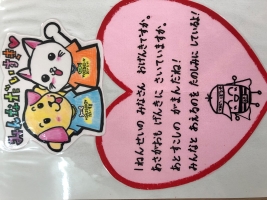 みんなだいすき♥
1ねんせいの みなさん おげんきですか。
あさがおも げんきに さいていますか。
あとすこしの がまんだね!
みんなと あえるのを たのしみに しているよ!